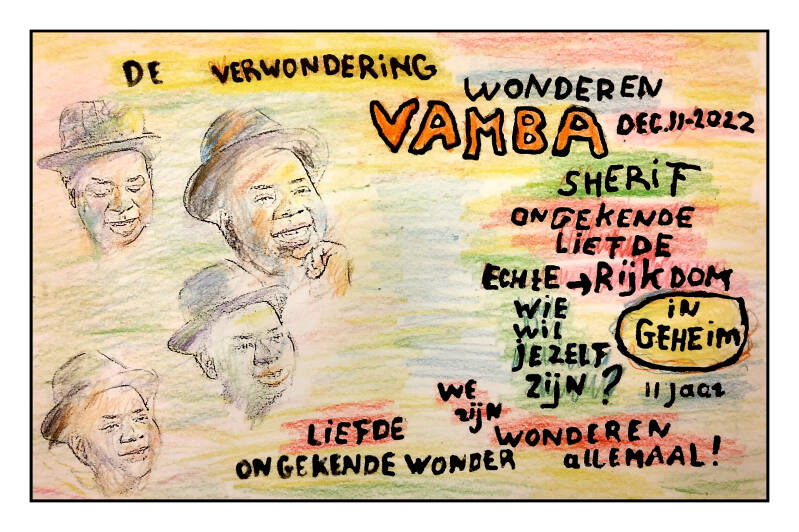 DE VERWONDERING
WONDEREN
VAMBA DEC.11-2022
SHERIF
ONGEKENDE
LIEFDE
ECHTE → RIJKDOM
WIE
WIL
JEZELF
ZIJN?
IN
GEHEIM
11 jaar
WE
ZIJN
WONDEREN
ALLEMAAL!
LIEFDE
ONGEKENDE WONDER